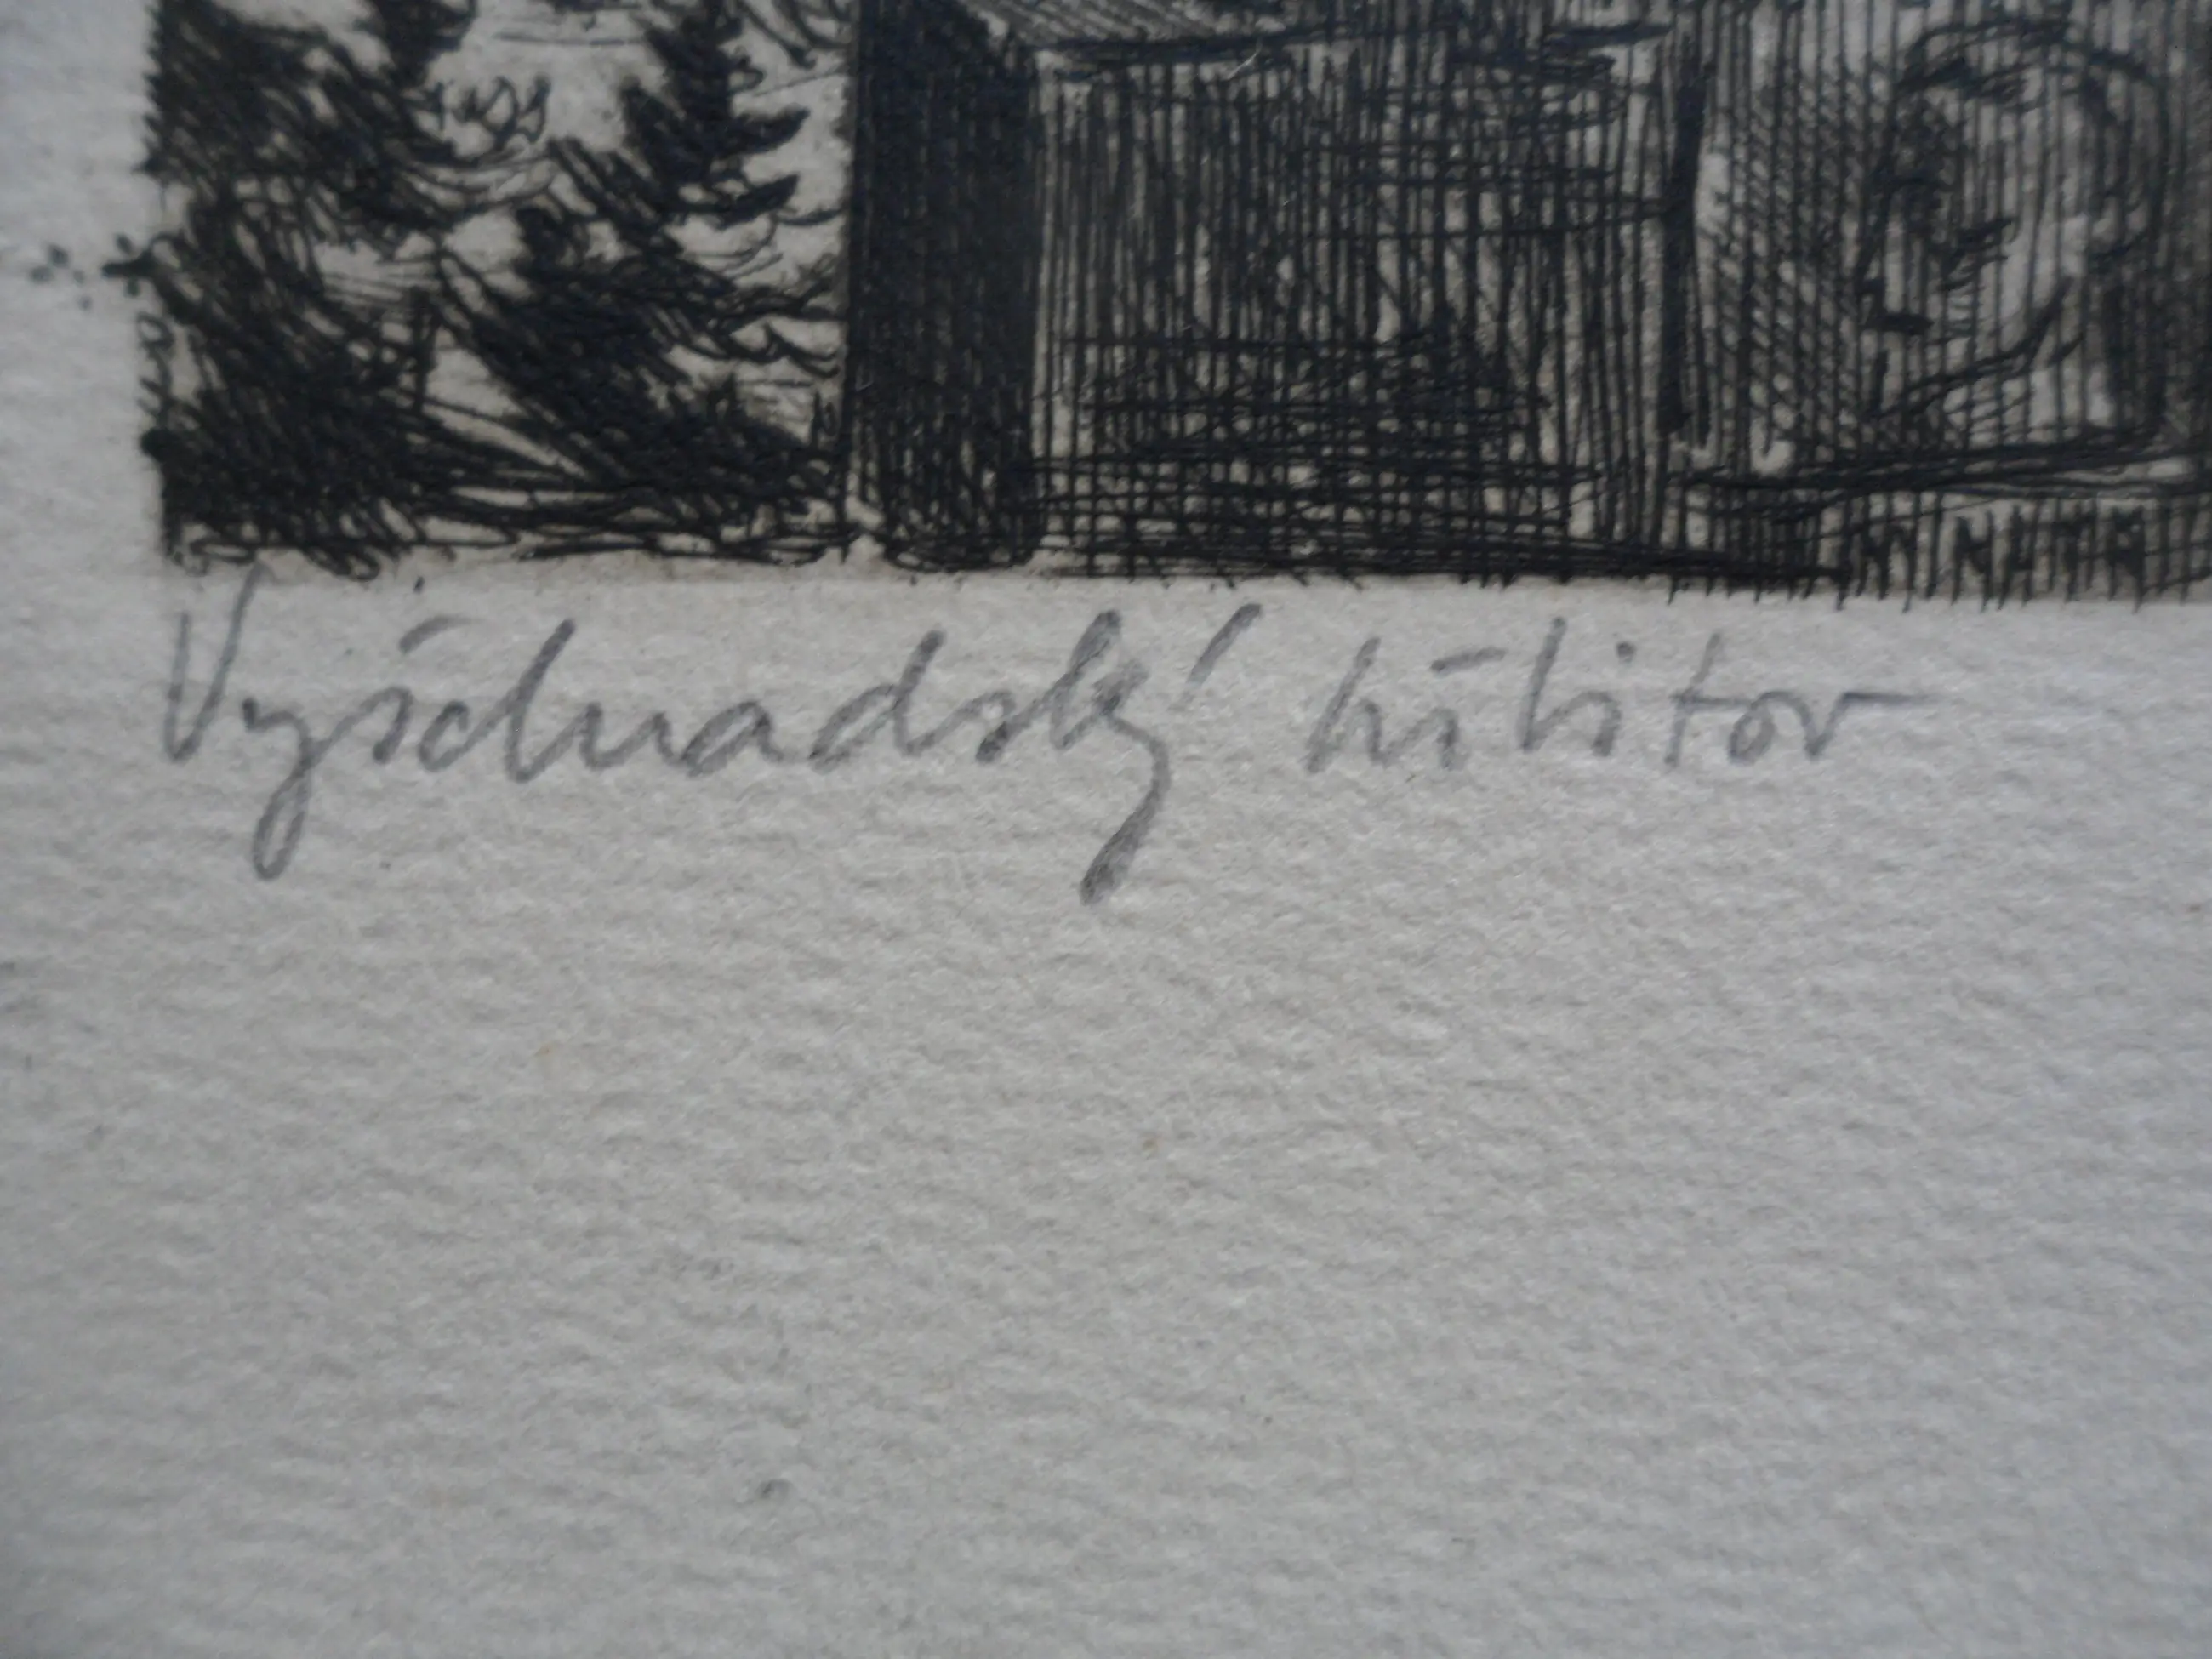 Vyšehradský hřbitov